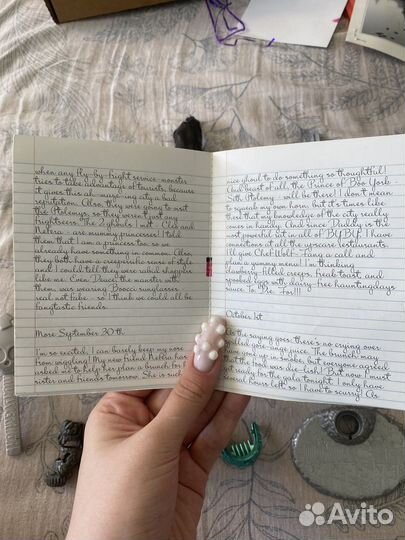 when any fly-by-fright service-monster
tries to take advantage of tourists, because
it gives this ah-maze-ing city a bad
reputation. Also, they were going to visit
the Ptolemys, so they weren't just any
frightseers. The 2 ghouls I met - Cleo and
Nefera - are mummy princesses! I told
them that I am a princess too, so we
already have something in common. Also,
they both have a creeperrific sense of style
and I could tell they were rabid shoppers
like me. Even Deuce, the manster with
them, was wearing Boocci sunglasses -
real not fake - so I think we could all be
fangtastic friends.
More September 30th
I'm so excited, I can barely keep my nose
from wiggling! My new friend Nefera has
asked me to help her plan a brunch for
sister and friends tomorrow. She is such
nice ghoul to do something so thoughtful!
(And beast of all, the Prince of Boo York -
Seth Ptolemy - will be there!) I don't mean
to squeak my own horn, but it's times like
this that my knowledge of the city really
comes in handy. And since Daddy is the
most powerful bit in all of BYBY, I have
connections at all the upscare restaurants.
I'll give Chef Wolf-Fang a call and
plan a yummy menu! I'm thinking
clawberry-filled creeps, freak toast, and
spooked eggs with dairy-free hauntingdays
sauce. To Die-For!!!
October 1st
As the saying goes: there's no crying over
spoiled gore-ange juice. The brunch may
have
that the food was die-lish! But I must
get ready for the gala tonight. I only have
several hours left, so I have to scurry! As
Avito